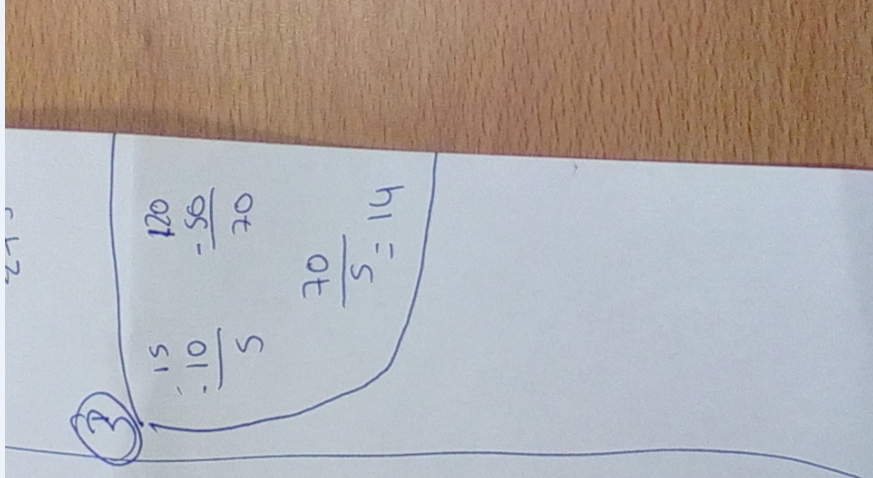 3
15
-10
5
120
-50
70
70
5
= 14